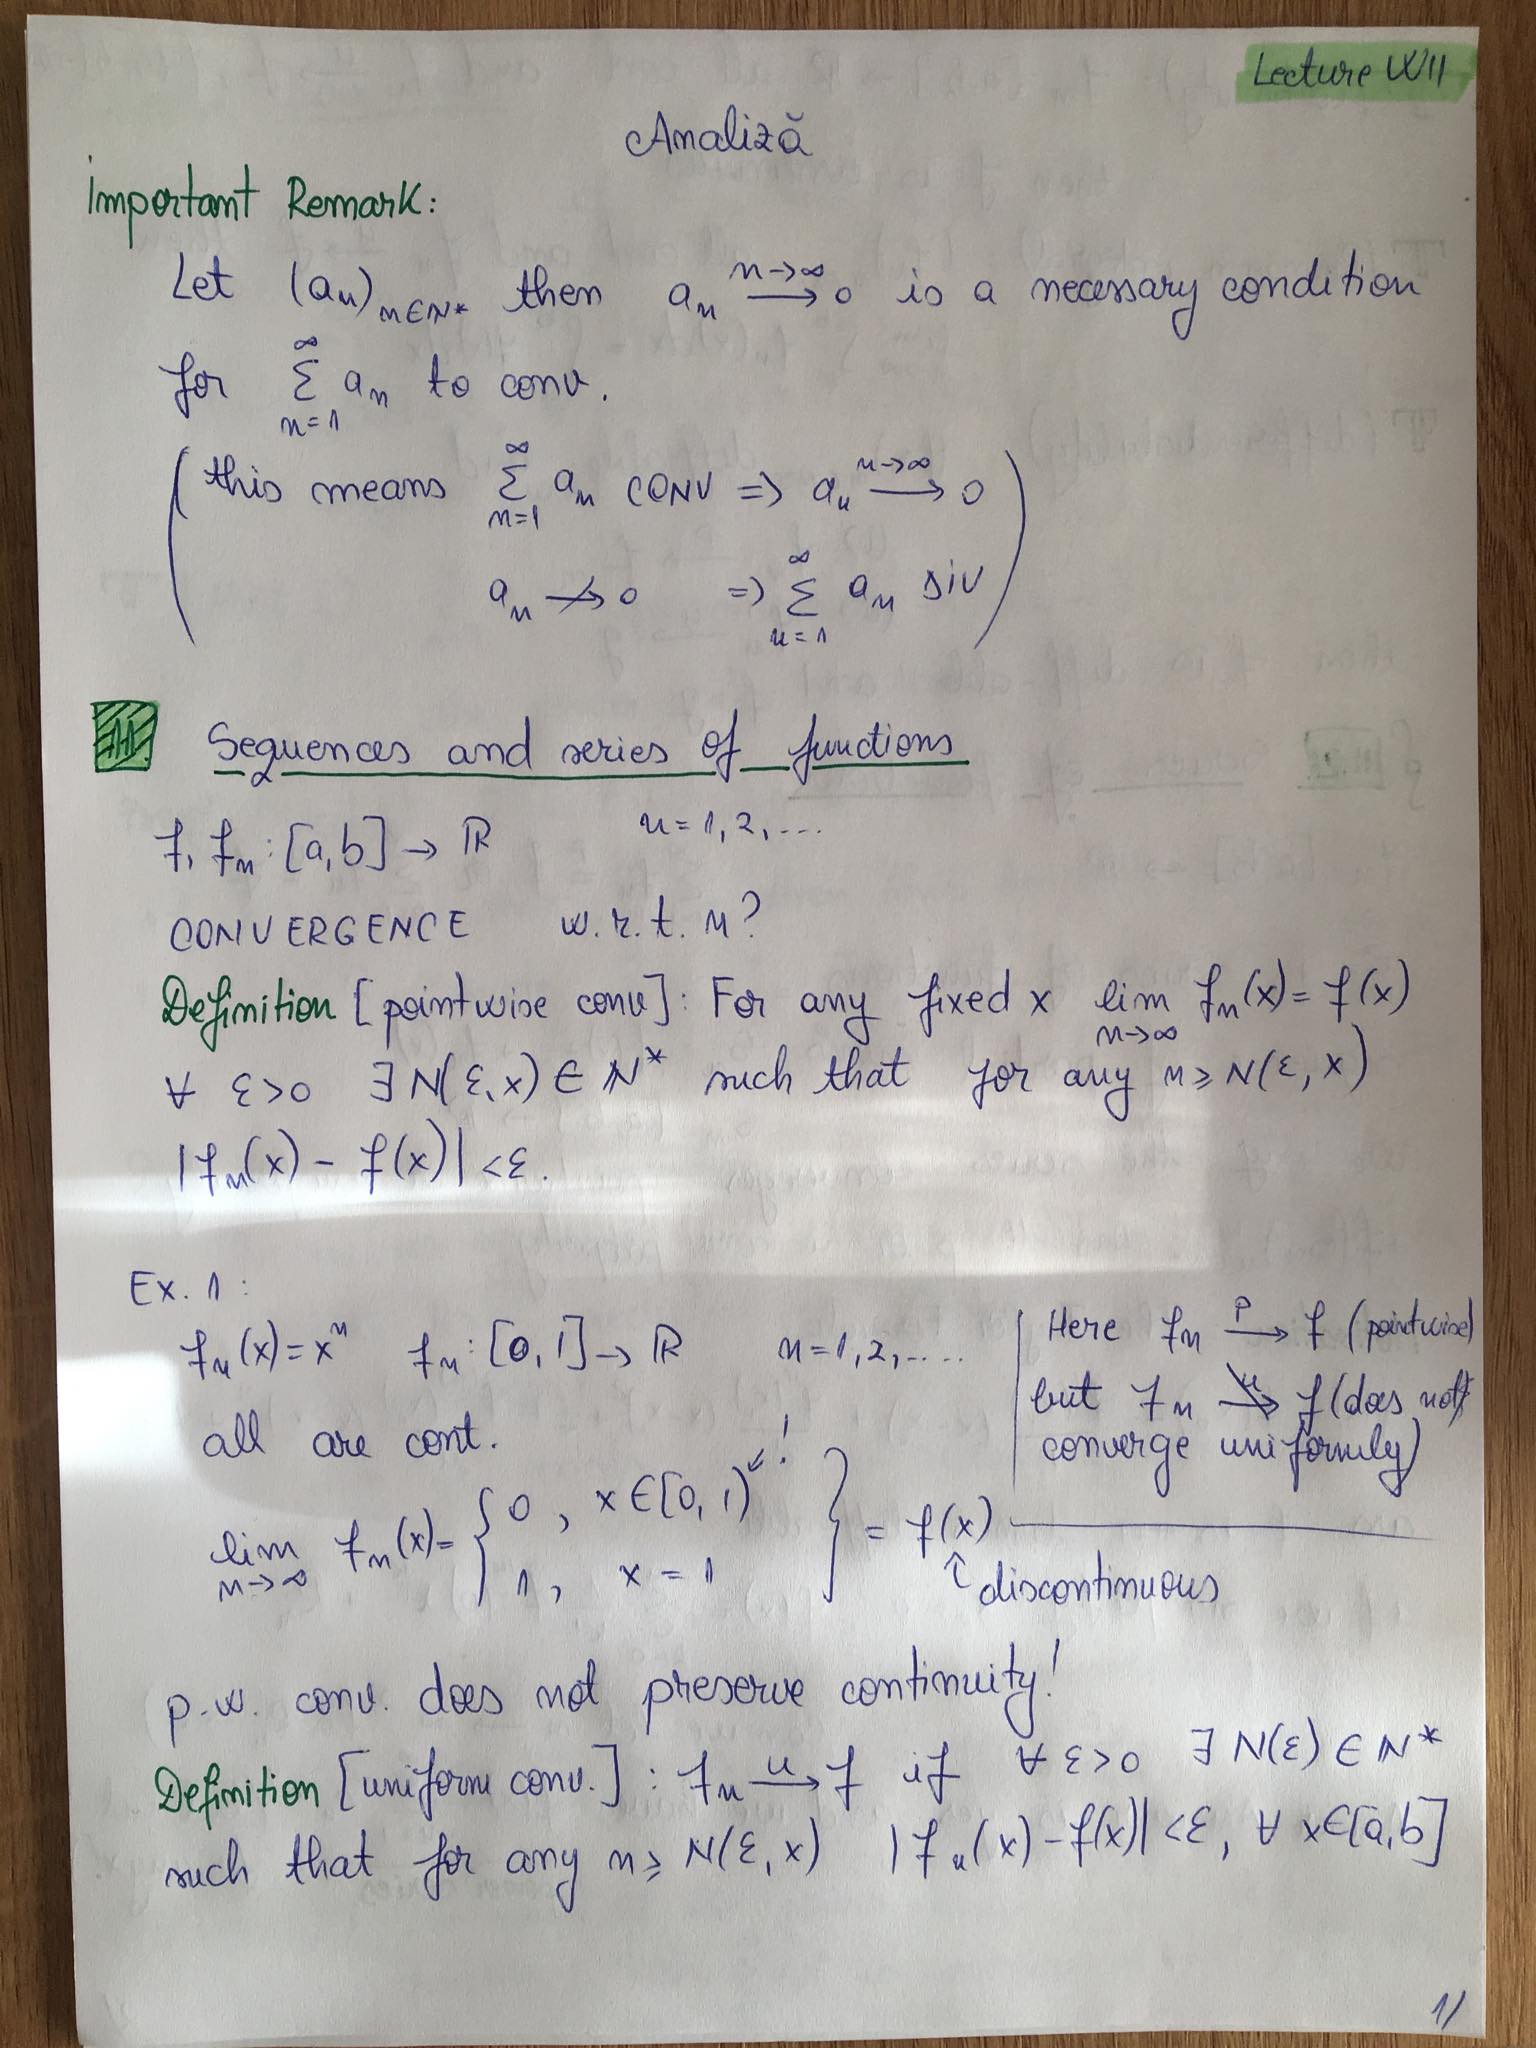 Lecture W11
Analiză
Important Remark:
Let (aₙ)ₙ∈ℕ* then aₙ →(n→∞) 0 is a necessary condition
for ∑(n=1 to ∞) aₙ to conv.
(this means ∑(n=1 to ∞) aₙ CONV => aₙ →(n→∞) 0
aₙ ↛ 0 => ∑(n=1 to ∞) aₙ DIV)
Sequences and series of functions
f, fₙ: [a,b] → ℝ n=1,2,...
CONVERGENCE w.r.t. n?
Definition [pointwise conv]: For any fixed x lim(n→∞) fₙ(x) = f(x)
∀ ε>0 ∃ N(ε,x) ∈ ℕ* such that for any n ≥ N(ε,x)
|fₙ(x) - f(x)| < ε.
Ex. 1:
fₙ(x) = xⁿ fₙ: [0,1] → ℝ n=1,2,....
all are cont.
Here fₙ →(p) f (pointwise)
but fₙ ↛(u) f (does not
converge uniformly)
lim(n→∞) fₙ(x) = {0, x∈[0,1) ↙!
1, x = 1} = f(x)
↑ discontinuous
p.w. conv. does not preserve continuity!
Definition [uniform conv.]: fₙ →(u) f if ∀ ε>0 ∃ N(ε) ∈ ℕ*
such that for any n ≥ N(ε,x) |fₙ(x) - f(x)| < ε, ∀ x∈[a,b]
1/